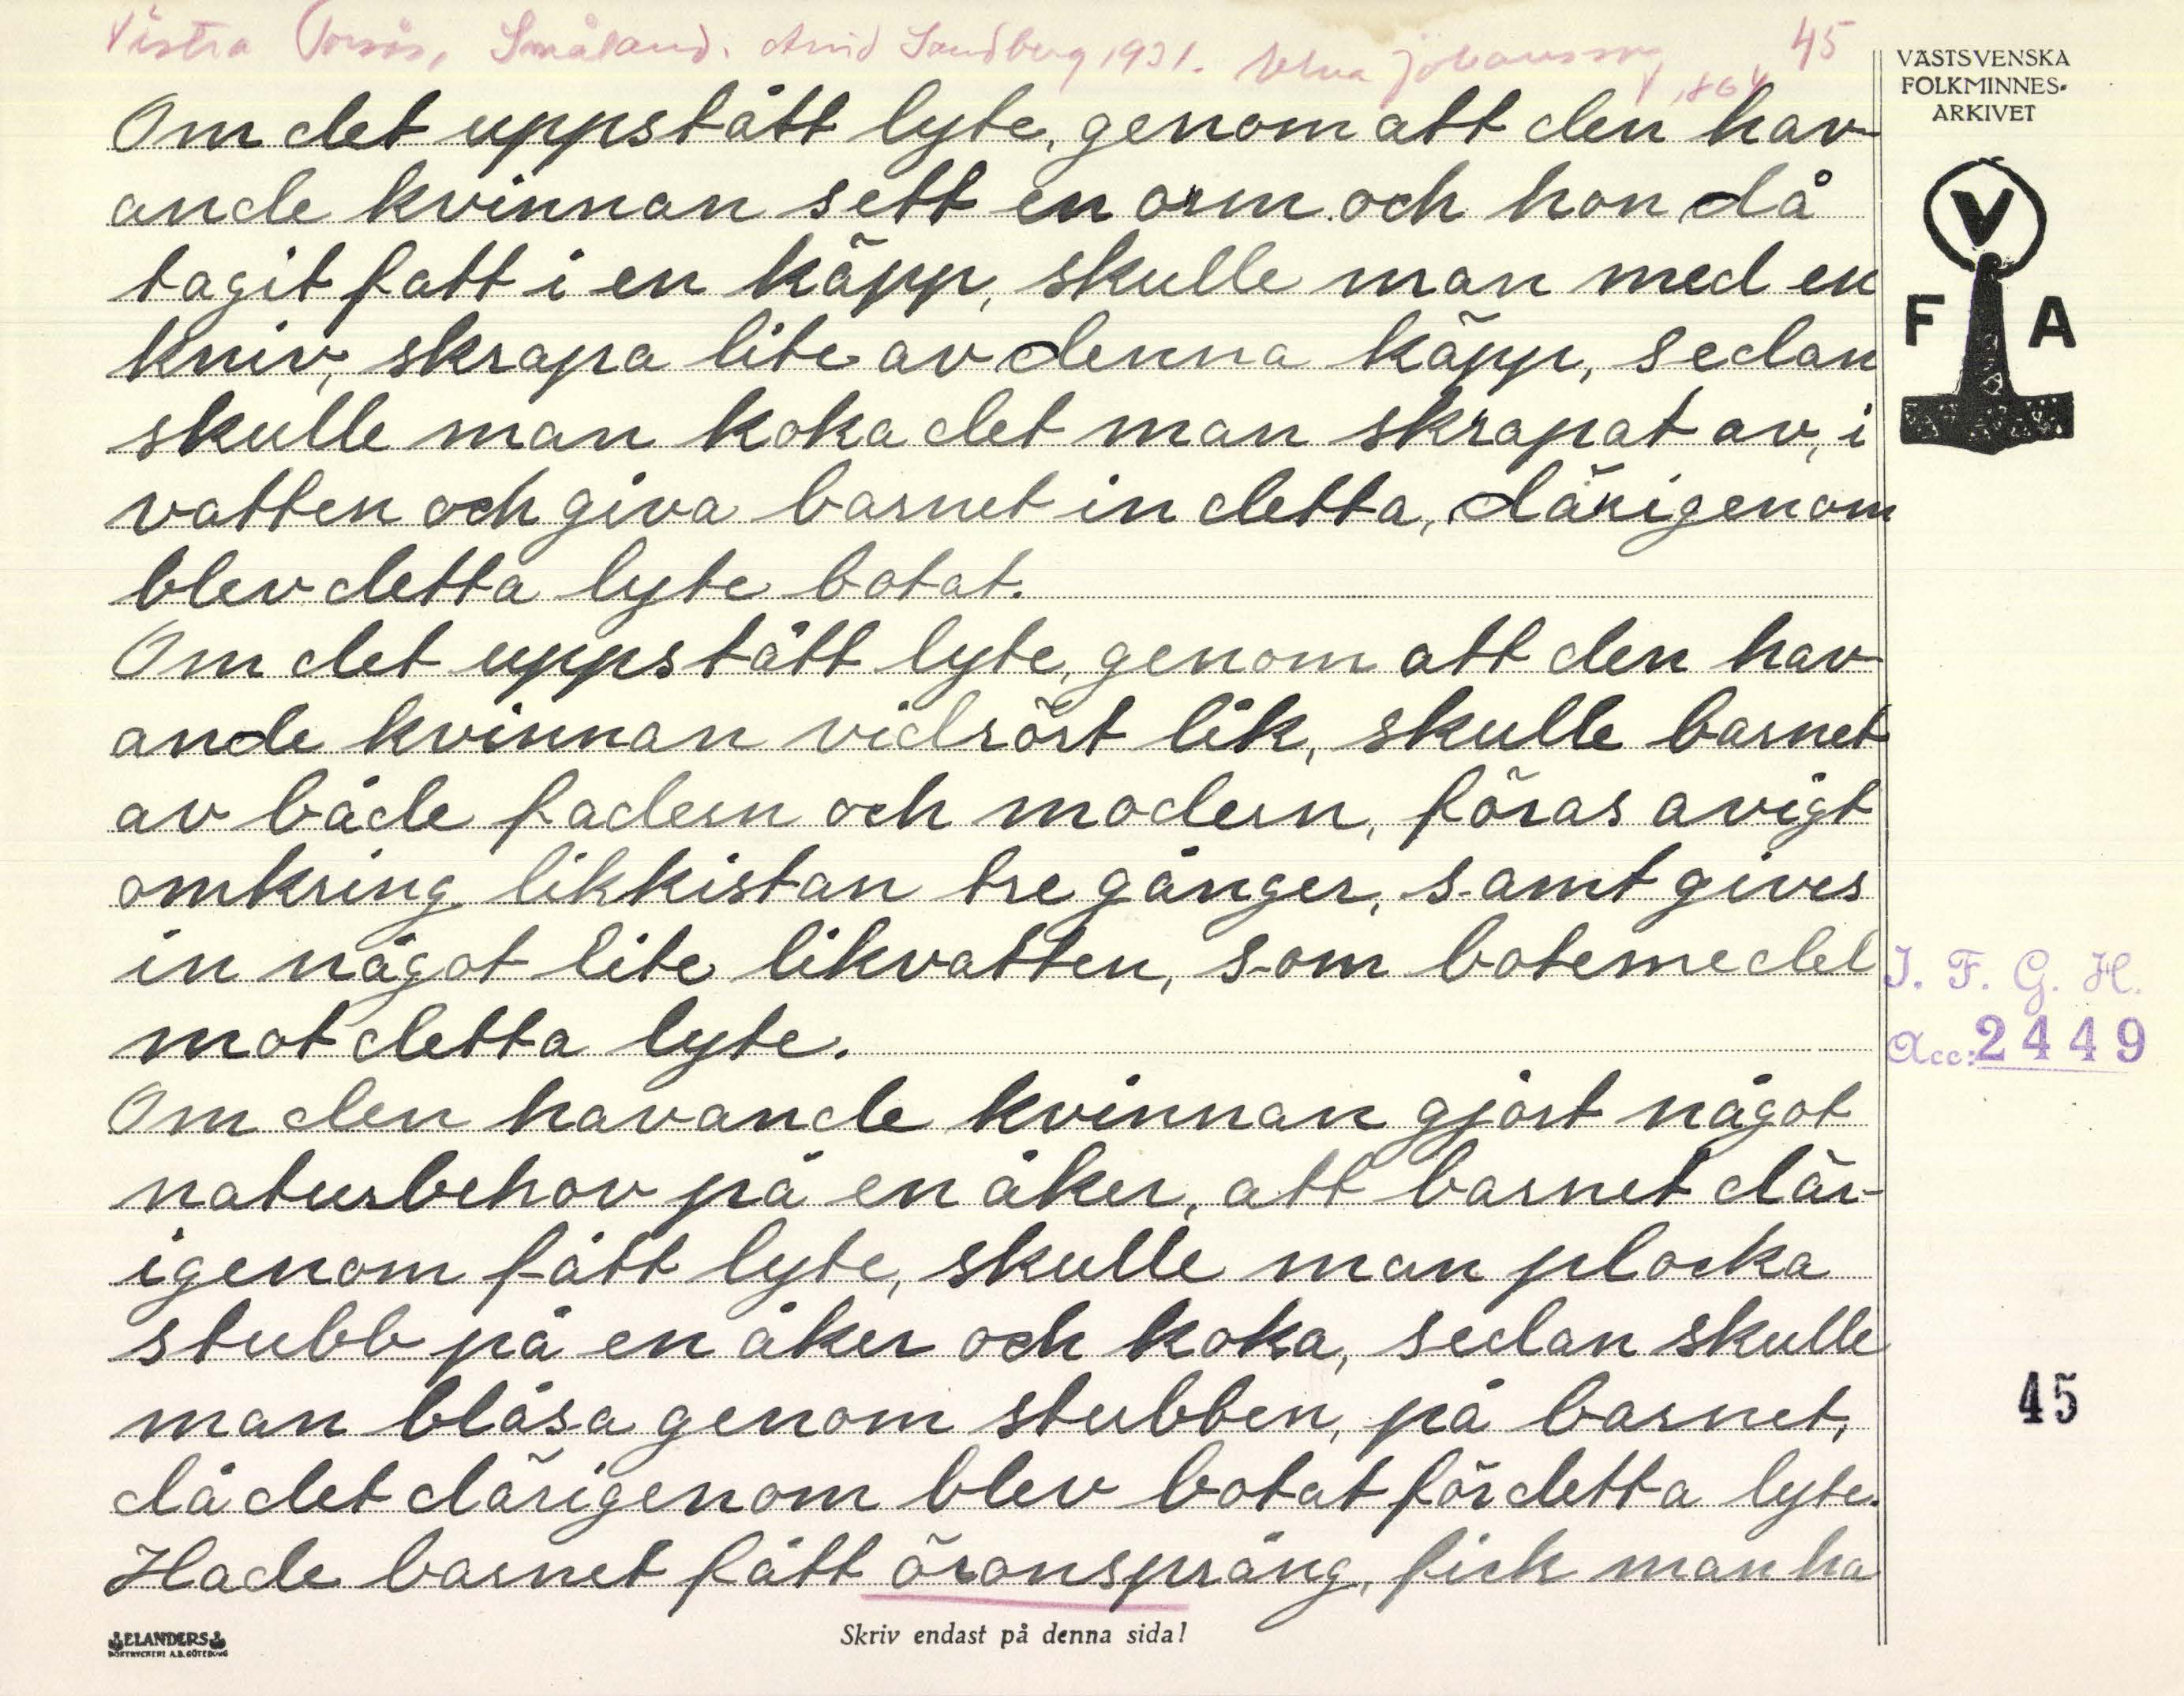 Västra Torsås, Småland. Arvid Sandberg 1931. Johansson 1864 45
VÄSTSVENSKA
FOLKMINNES-
ARKIVET
V
F A
Om det uppstått lyte, genom att den hav
ande kvinnan sett en orm och hon då
tagit fatt i en käpp, skulle man med en
kniv, skrapa lite av denna käpp, sedan
skulle man koka det man skrapat av, i
vatten och giva barnet in detta, därigenom
blev detta lyte botat.
Om det uppstått lyte, genom att den hav
ande kvinnan vidrört lik, skulle barnet
av både fadern och modern, föras avigt
omkring likkistan tre gånger, samt gives
in något lite likvatten, som botemedel
mot detta lyte.
Om den havande kvinnan gjort något
naturbehov på en åker, att barnet där-
igenom fått lyte, skulle man plocka
stubb på en åker och koka, sedan skulle
man blåsa genom stubben, på barnet,
då det därigenom blev botat för detta lyte.
Hade barnet fått öronspräng, fick man ha
I. F. G. H.
Acc: 2449
45
Skriv endast på denna sida!
ELANDERS
BOKTRYCKERI A.B. GÖTEBORG